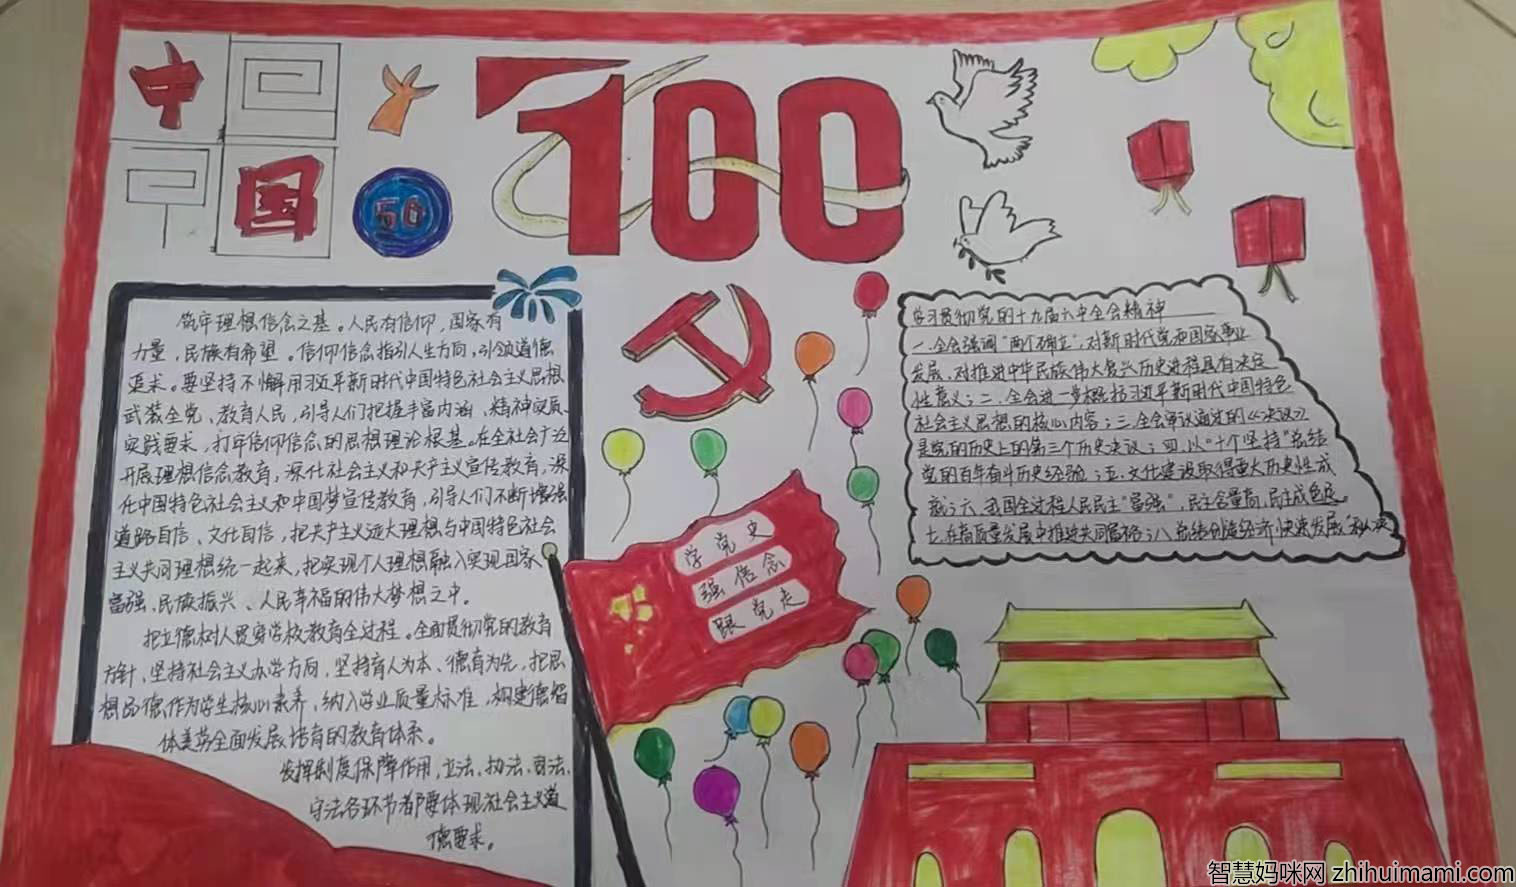 中
国
50
100
筑牢理想信念之基。人民有信仰,国家有
力量,民族有希望。信仰信念指引人生方向,引领道德
追求。要坚持不懈用习近平新时代中国特色社会主义思想
武装全党、教育人民,引导人们把握丰富内涵、精神实质、
实践要求,打牢信仰信念的思想理论根基。在全社会广泛
开展理想信念教育,深化社会主义和共产主义宣传教育,深
化中国特色社会主义和中国梦宣传教育,引导人们不断增强
道路自信、文化自信,把共产主义远大理想与中国特色社会
主义共同理想统一起来,把实现个人理想融入实现国家
富强、民族振兴、人民幸福的伟大梦想之中。
把立德树人贯穿学校教育全过程。全面贯彻党的教育
方针,坚持社会主义办学方向,坚持育人为本、德育为先,把思
想品德作为学生核心素养、纳入学业质量标准,构建德智
体美劳全面发展培育的教育体系。
发挥制度保障作用,立法、执法、司法、
守法各环节都要体现社会主义道
德要求。
学党史
强信念
跟党走
学习贯彻党的十九届六中全会精神
一、全会强调"两个确立",对新时代党和国家事业
发展、对推进中华民族伟大复兴历史进程具有决定
性意义;二、全会进一步概括习近平新时代中国特色
社会主义思想的核心内容;三、全会审议通过的《《决议》》
是党的历史上的第三个历史决议;四、以"十个坚持"总结
党的百年奋斗历史经验;五、文化建设取得重大历史性成
就;六、我国全过程人民民主"富强",民主含量高,民主成色足。
七、在高质量发展中推进共同富裕;八、总结创造经济快速发展
智慧妈咪网 zhihuimami.com